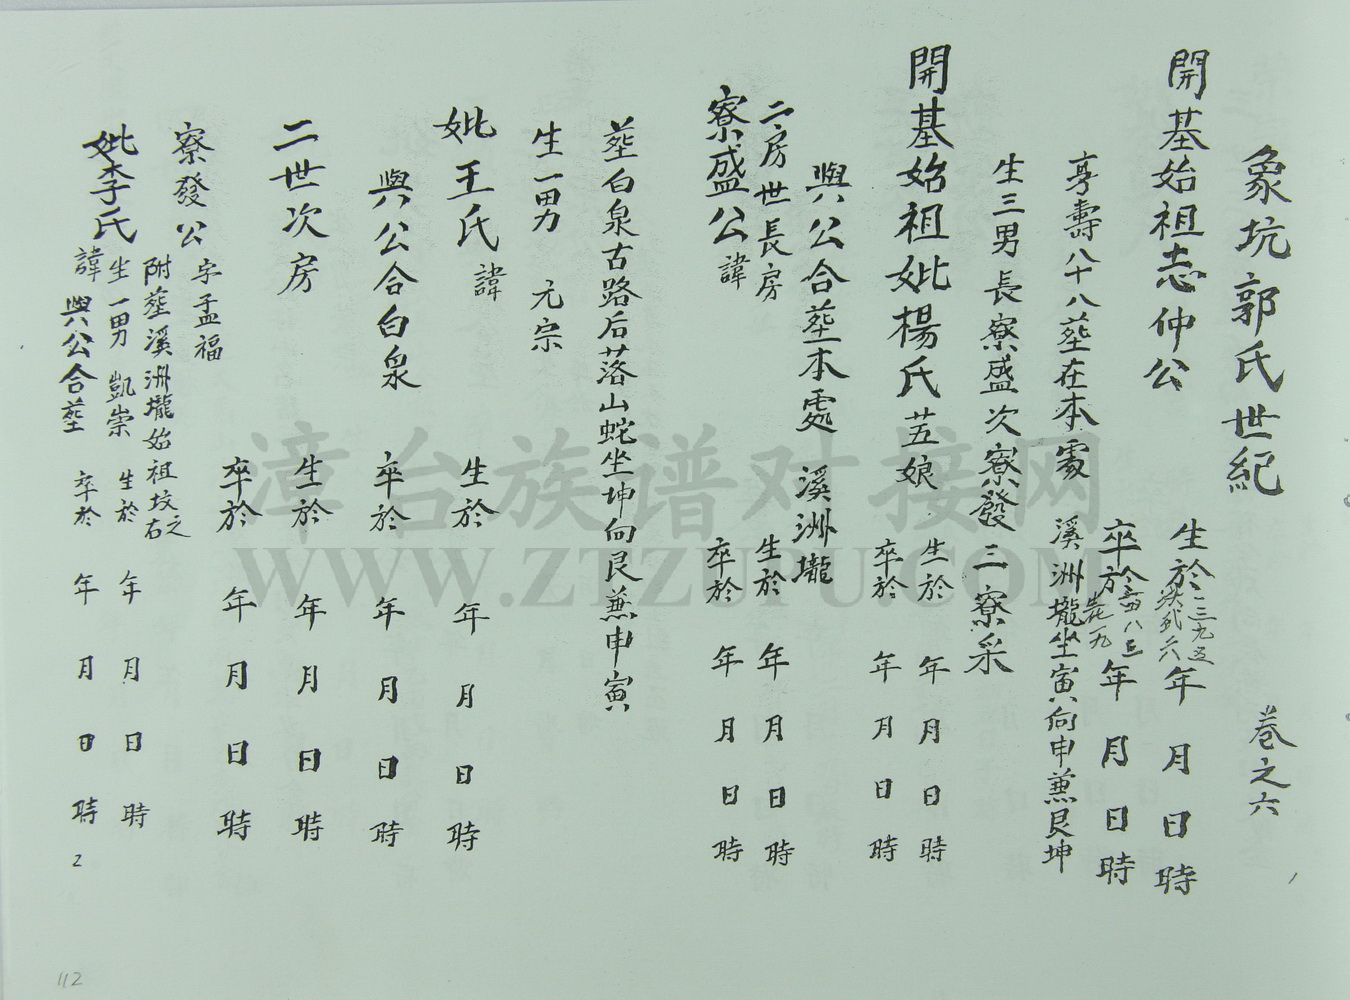 象坑郭氏世紀 卷之六
開基始祖志仲公
生於 年 月 日 時
一三九五
卒於 年 月 日 時
享壽八十八塟在本處 溪洲壠坐寅向申兼艮坤
生三男長寮盛次寮發三寮采
開基始祖妣楊氏五娘
生於 年 月 日 時
卒於 年 月 日 時
與公合塟本處 溪洲壠
二房世長房
寮盛公諱
生於 年 月 日 時
卒於 年 月 日 時
塟白泉古路后落山蛇坐坤向艮兼申寅
生一男 元宗
妣王氏諱
生於 年 月 日 時
卒於 年 月 日 時
與公合白泉
二世次房
生於 年 月 日 時
卒於 年 月 日 時
寮發公 字孟福
附塟溪洲壠始祖坟之右
妣李氏諱
生一男 凱崇
與公合塟
生於 年 月 日 時
卒於 年 月 日 時
2
112
漳台族谱对接网
WWW.ZTZUPU.COM